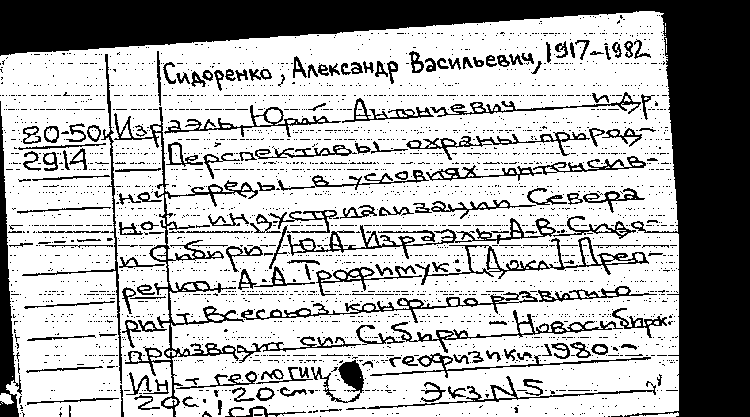 Сидоренко, Александр Васильевич, 1917-1982
80-50к Израэль, Юрий Антониевич и др.
2914 Перспективы охраны природ-
ной среды в условиях интенсив-
ной индустриализации Севера
и Сибири / Ю.А. Израэль, А.В. Сидо-
ренко, А.А. Трофимук: [Докл]. Преп-
ринт Всесоюз. конф. по развитию
производит сил Сибири. - Новосибирск:
Ин-т геологии геофизики, 1980. -
20с.; 20см. Экз. N5.